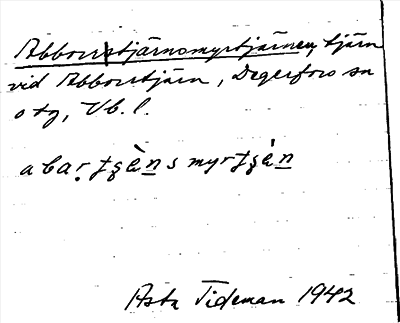 Abborrtjärnsmyrtjärnen, tjärn
vid Abborrtjärn, Degerfors sn
o tg, Vb. l.
abaṛṭʂɛ̀n̲smyrṭʂɛ̀n̲
Asta Tideman 1942